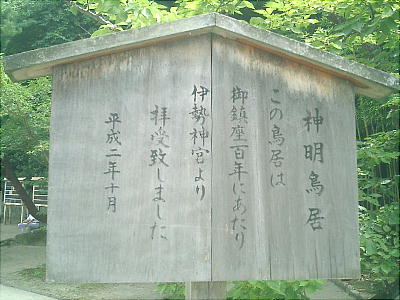 神明鳥居
この鳥居は
御鎮座百年にあたり
伊勢神宮より
拝受致しました
平成二年十月